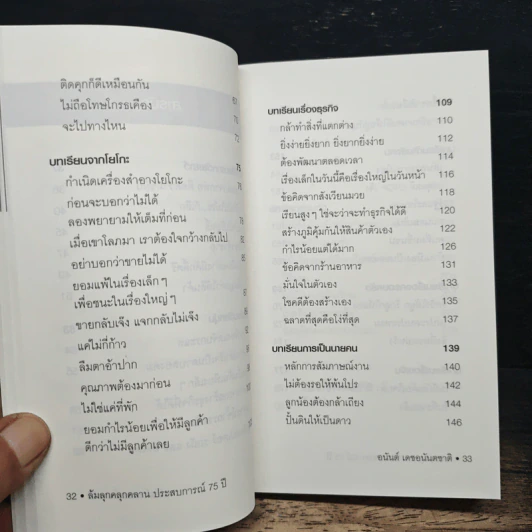 ติดคุกก็ดีเหมือนกัน
ไม่ถือโทษโกรธเคือง
จะไปทางไหน 72
บทเรียนจากโยโกะ 75
กำเนิดเครื่องสำอางโยโกะ 76
ก่อนจะบอกว่าไม่ได้
ลองพยายามให้เต็มที่ก่อน
เมื่อเขาโลภมา เราต้องใจกว้างกลับไป
อย่าบอกว่าขายไม่ได้
ยอมแพ้ในเรื่องเล็กๆ
เพื่อชนะในเรื่องใหญ่ๆ
ขายกลับเจ๊ง แจกกลับไม่เจ๊ง
แค่ไม่กี่ก้าว
ลืมตาอ้าปาก
คุณภาพต้องมาก่อน
ไม่ใช่แค่ที่พัก
ยอมกำไรน้อยเพื่อให้มีลูกค้า
ดีกว่าไม่มีลูกค้าเลย
32 • ล้มลุกคลุกคลาน ประสบการณ์ 75 ปี
บทเรียนเรื่องธุรกิจ 109
กล้าทำสิ่งที่แตกต่าง 110
ยิ่งง่ายยิ่งยาก ยิ่งยากยิ่งง่าย 112
ต้องพัฒนาตลอดเวลา 114
เรื่องเล็กในวันนี้คือเรื่องใหญ่ในวันหน้า 116
ข้อคิดจากสังเวียนมวย 118
เรียนสูงๆ ใช่จะว่าจะทำธุรกิจได้ดี 120
สร้างภูมิคุ้มกันให้สินค้าตัวเอง 122
กำไรน้อยแต่ได้มาก 126
ข้อคิดจากร้านอาหาร 131
มั่นใจในตัวเอง 133
โชคดีต้องสร้างเอง 135
ฉลาดที่สุดคือโง่ที่สุด 137
บทเรียนการเป็นนายคน 139
หลักการสัมภาษณ์งาน 140
ไม่ต้องรอให้พ้นโปร 142
ลูกน้องต้องกล้าเถียง 144
ปั้นดินให้เป็นดาว 146
อนันต์ เดชอนันตชาติ • 33